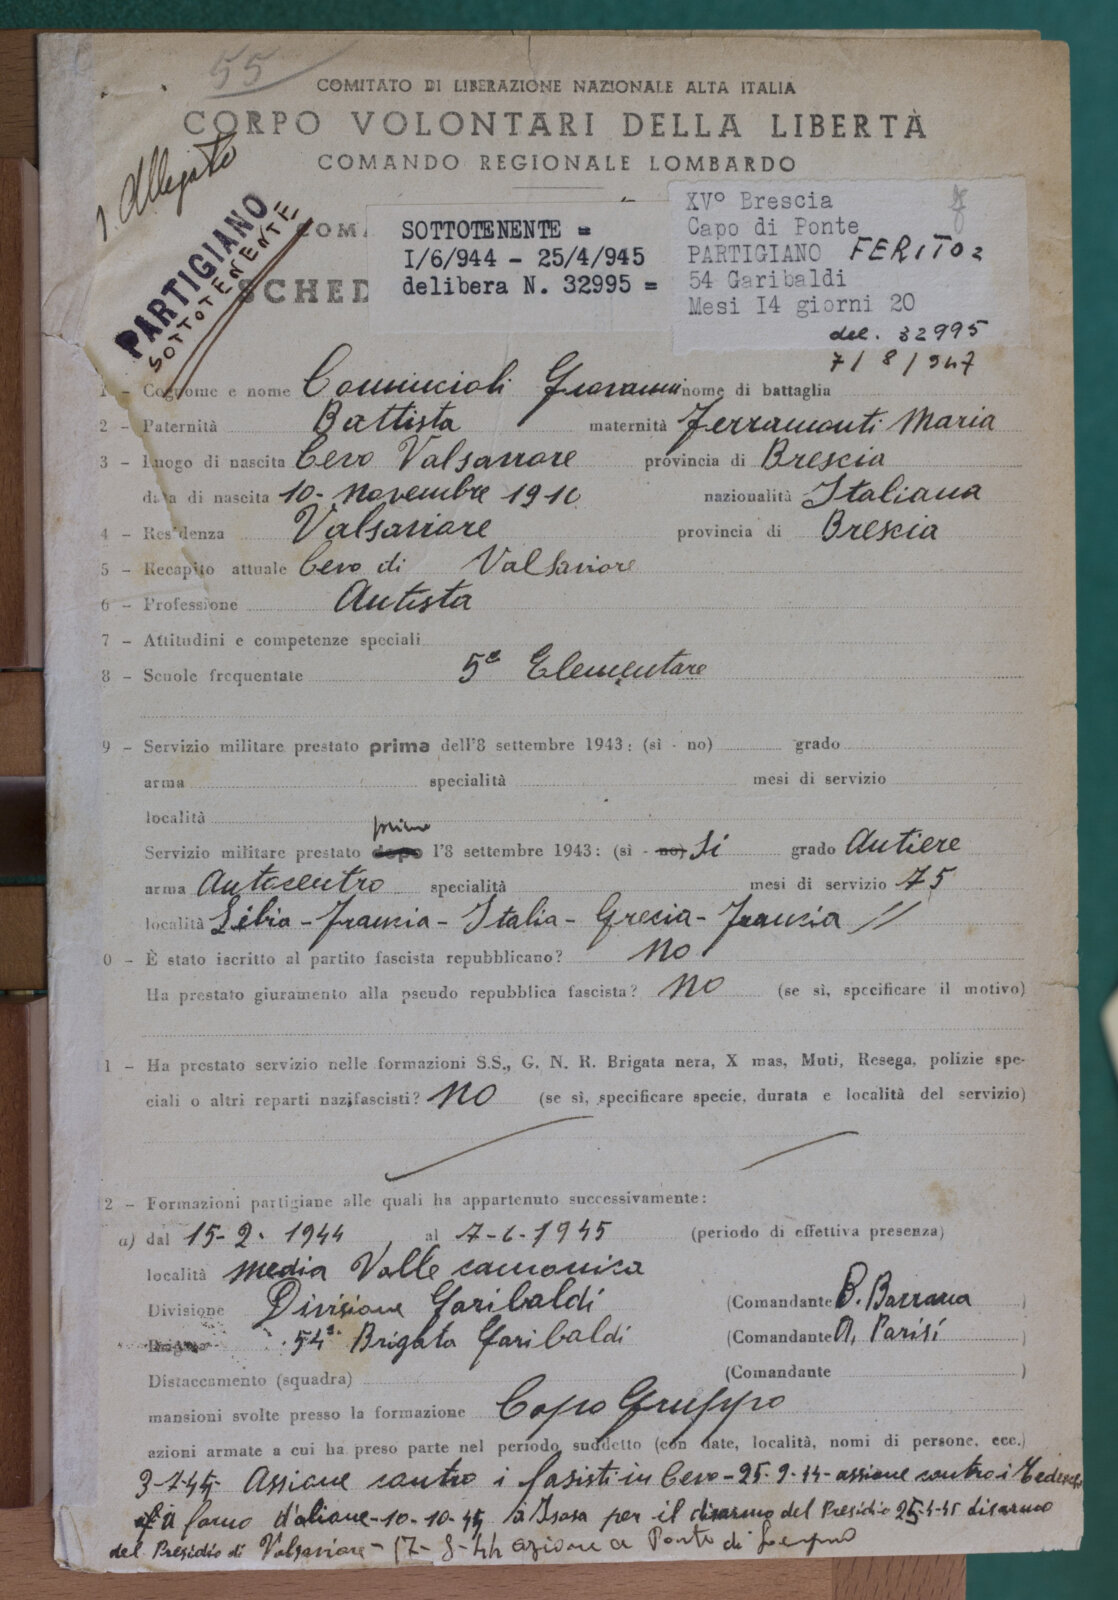 55
COMITATO DI LIBERAZIONE NAZIONALE ALTA ITALIA
CORPO VOLONTARI DELLA LIBERTÀ
COMANDO REGIONALE LOMBARDO
1 Allegato
PARTIGIANO
SOTTOTENENTE
COMA
SCHED
SOTTOTENENTE =
I/6/944 - 25/4/945
delibera N. 32995 =
XV° Brescia
Capo di Ponte
PARTIGIANO FERITO
54 Garibaldi
Mesi I4 giorni 20
del. 32995
7/8/947
1 - Cognome e nome Comincioli Giovanni nome di battaglia
2 - Paternità Battista maternità Ferramonti Maria
3 - Luogo di nascita Cevo Valsaviore provincia di Brescia
data di nascita 10 - novembre 1910 nazionalità Italiana
4 - Residenza Valsaviore provincia di Brescia
5 - Recapito attuale Cevo di Valsaviore
6 - Professione Autista
7 - Attitudini e competenze speciali
8 - Scuole frequentate 5ª Elementare
9 - Servizio militare prestato prima dell'8 settembre 1943: (sì - no) grado
arma specialità mesi di servizio
località
prima
Servizio militare prestato dopo l'8 settembre 1943: (sì - no) Si grado Autiere
arma Autocentro specialità mesi di servizio 75
località Libia - Francia - Italia - Grecia - Francia //
0 - È stato iscritto al partito fascista repubblicano? no
Ha prestato giuramento alla pseudo repubblica fascista? no (se sì, specificare il motivo)
1 - Ha prestato servizio nelle formazioni S.S., G. N. R. Brigata nera, X mas, Muti, Resega, polizie spe-
ciali o altri reparti nazifascisti? no (se sì, specificare specie, durata e località del servizio)
2 - Formazioni partigiane alle quali ha appartenuto successivamente:
a) dal 15-2-1944 al 7-6-1945 (periodo di effettiva presenza)
località media Valle camonica
Divisione Divisione Garibaldi (Comandante B. Barrana )
Brigata 54ª Brigata Garibaldi (Comandante A. Parisi )
Distaccamento (squadra) (Comandante )
mansioni svolte presso la formazione Capo Gruppo
azioni armate a cui ha preso parte nel periodo suddetto (con date, località, nomi di persone, ecc.)
3-7-44 Assione contro i fasisti in Cevo - 25-9-44 - assione contro i Tedeschi
forno d'alione - 10-10-44 à Isasa per il disarmo del Presidio 25-4-45 disarmo
del Presidio di Valsaviore - 17-8-44 azione a Ponte di Legno